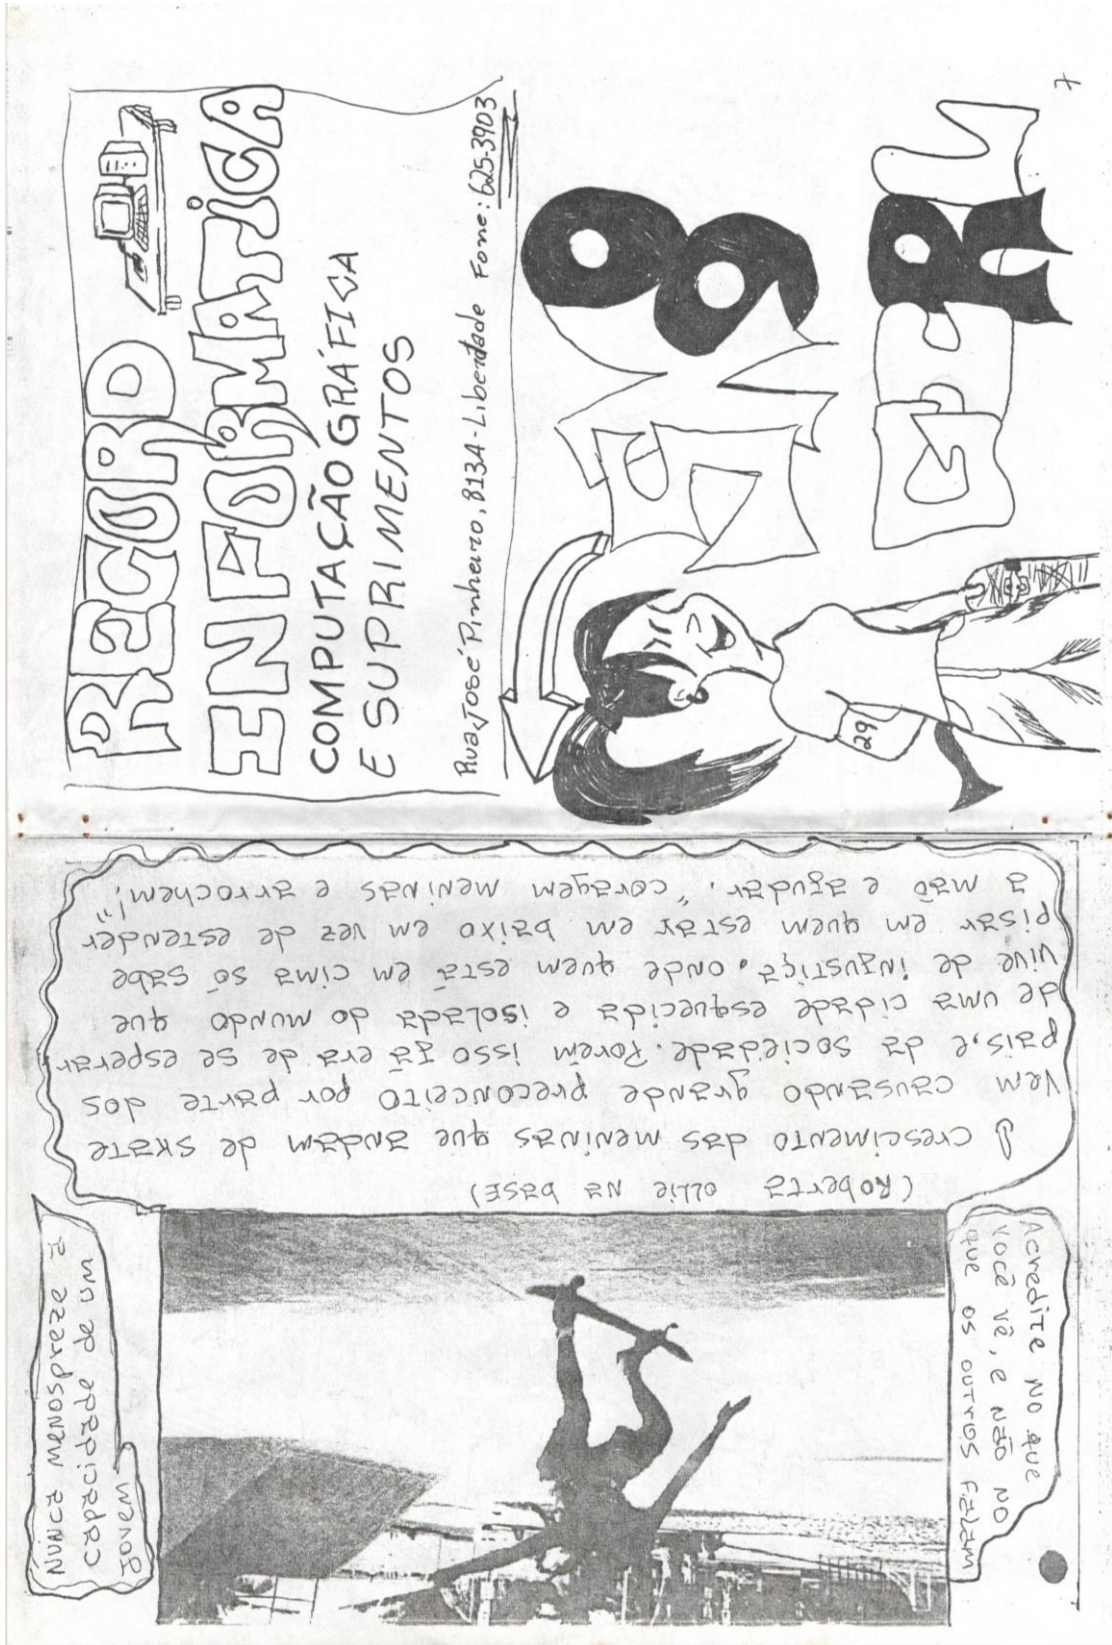 RECORD
INFORMATiCA
COMPUTAÇÃO GRÁFICA
E SUPRIMENTOS
Rua José Pinheiro, 813A - Liberdade Fone: 625-3903
29
7
Nunca menospreze a
capacidade de um
jovem
Acredite no que
você vê, e não no
que os outros falam
(Roberta ollie na base)
O crescimento das meninas que andam de skate
vem causando grande preconceito por parte dos
pais, e da sociedade. Porém isso já era de se esperar
de uma cidade esquecida e isolada do mundo que
vive de injustiça. onde quem está em cima só sabe
pisar em quem estar em baixo em vez de estender
a mão e ajudar. "coragem meninas e arrochem!"